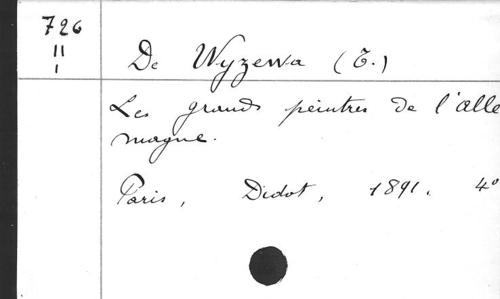 726
II
I
De Wyzewa (T.)
Les grands peintres de l'alle
magne.
Paris, Didot, 1891. 4º